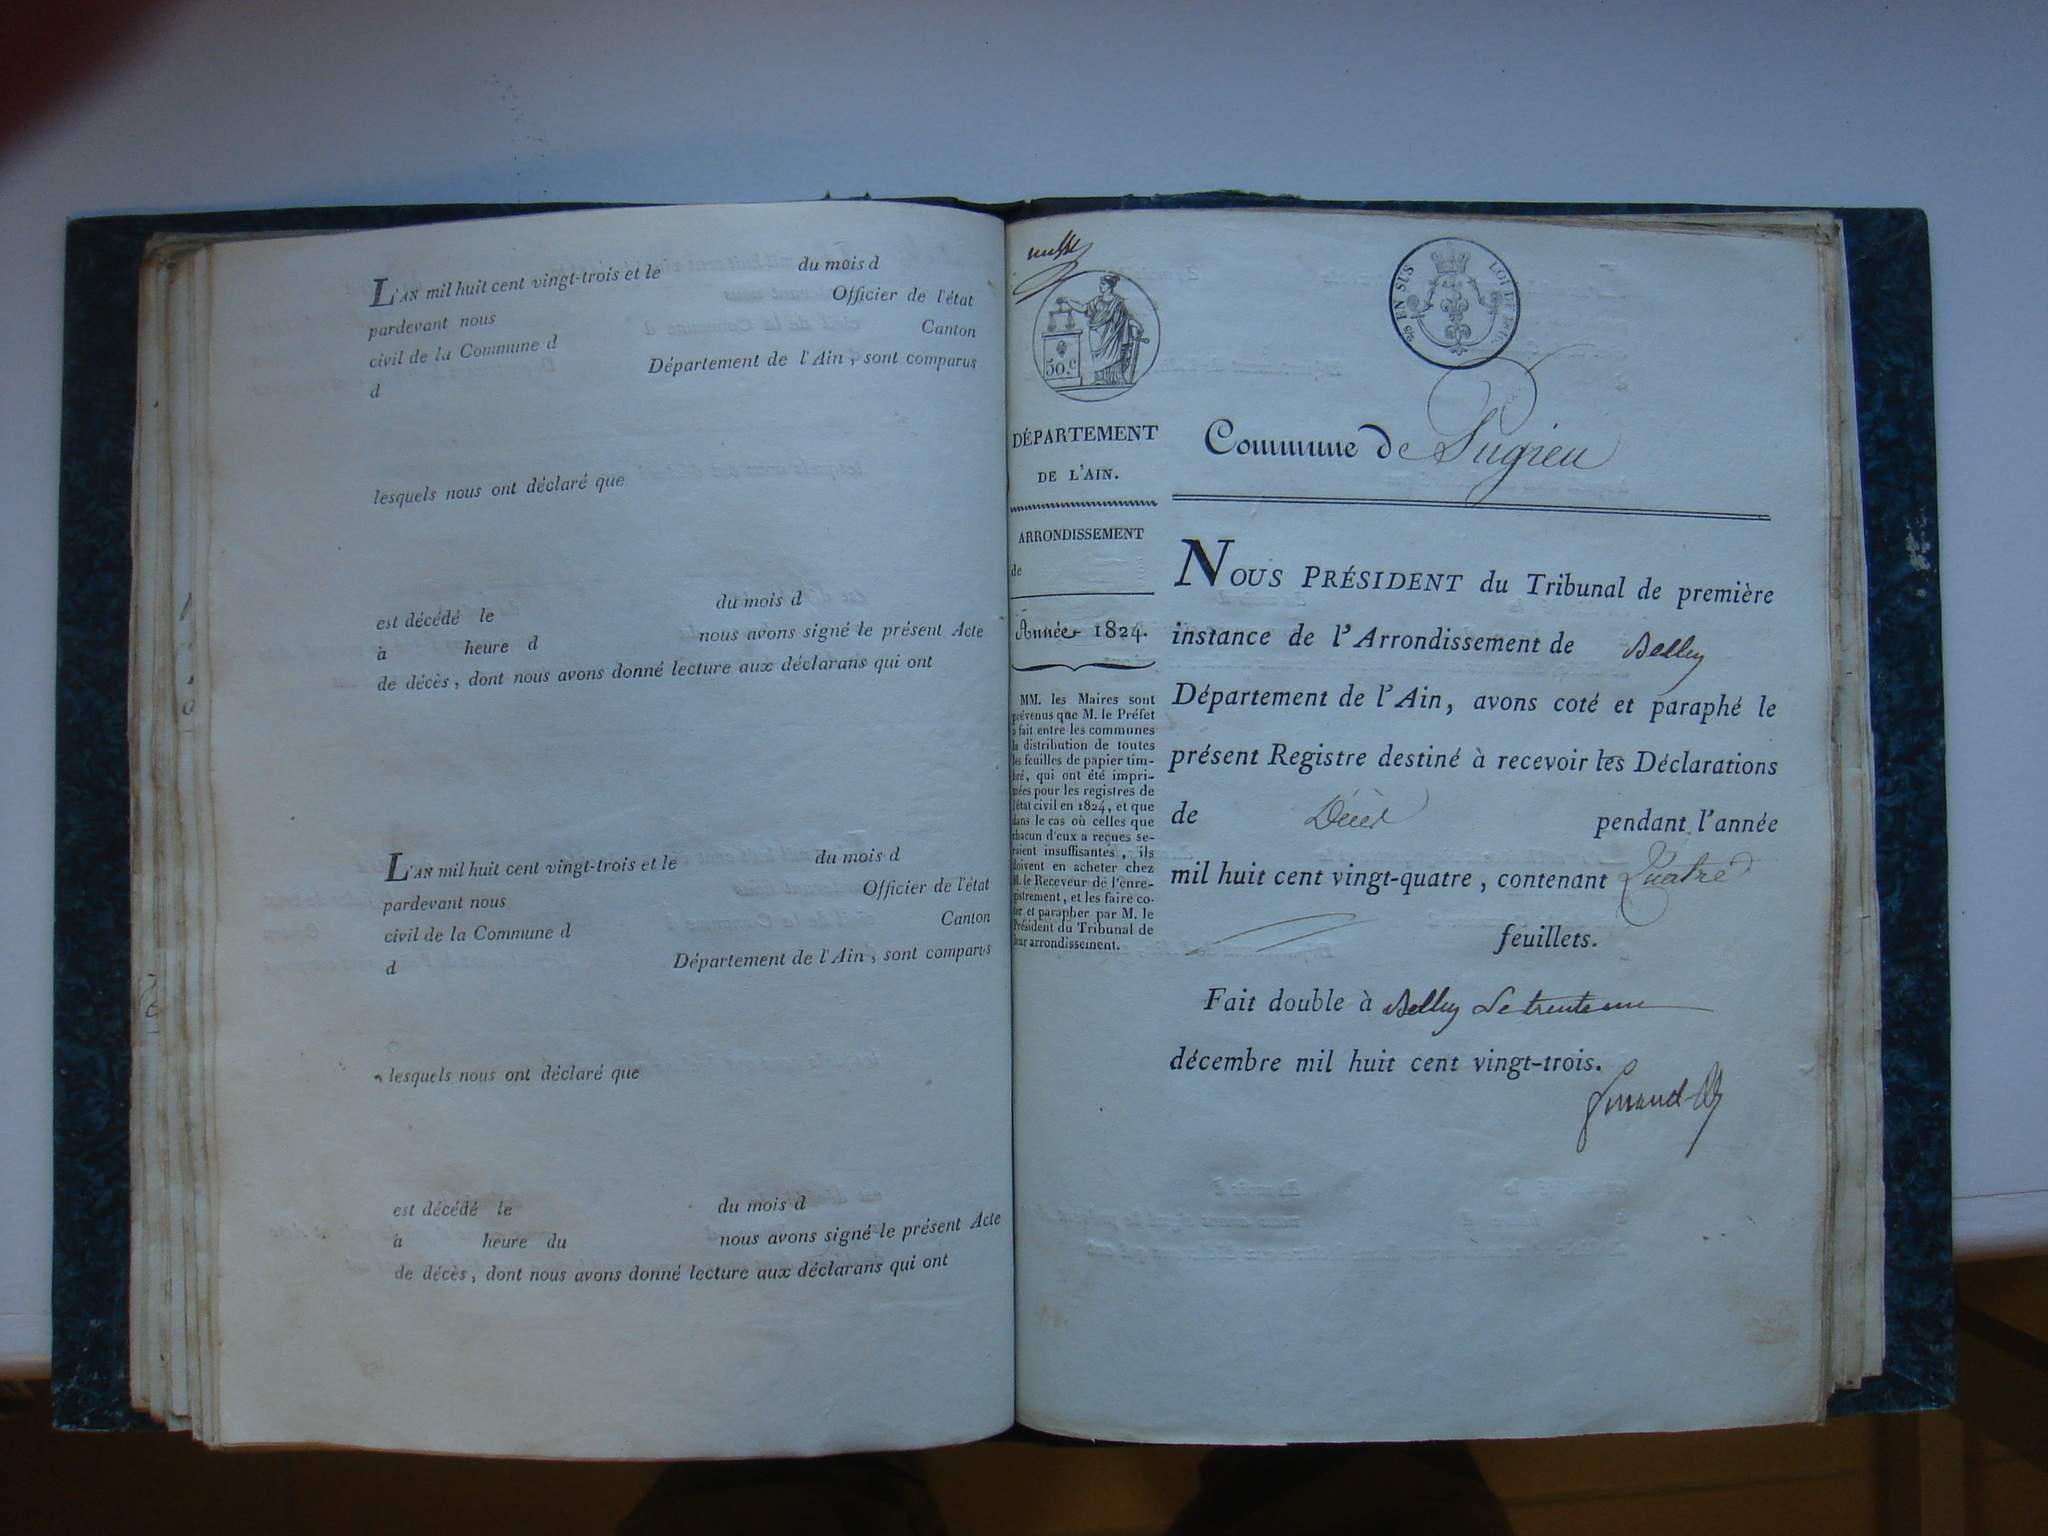 L'AN mil huit cent vingt-trois et le du mois d
pardevant nous Officier de l'état
civil de la Commune d Canton
d Département de l'Ain, sont comparus
lesquels nous ont déclaré que
est décédé le du mois d
à heure d nous avons signé le présent Acte
de décès, dont nous avons donné lecture aux déclarans qui ont
L'AN mil huit cent vingt-trois et le du mois d
pardevant nous Officier de l'état
civil de la Commune d Canton
d Département de l'Ain, sont comparus
lesquels nous ont déclaré que
est décédé le du mois d
à heure du nous avons signé le présent Acte
de décès, dont nous avons donné lecture aux déclarans qui ont
50.c
EN SUS LOI DE
DÉPARTEMENT
DE L'AIN.
ARRONDISSEMENT
de
Année 1824.
MM. les Maires sont
prévenus que M. le Préfet
a fait entre les communes
la distribution de toutes
les feuilles de papier tim-
bré, qui ont été impri-
mées pour les registres de
l'état civil en 1824, et que
dans le cas où celles que
chacun d'eux a reçues se-
raient insuffisantes, ils
doivent en acheter chez
M. le Receveur de l'enre-
gistrement, et les faire co-
ter et parapher par M. le
Président du Tribunal de
leur arrondissement.
Commune de Sugieu
NOUS PRÉSIDENT du Tribunal de première
instance de l'Arrondissement de Belley
Département de l'Ain, avons coté et paraphé le
présent Registre destiné à recevoir les Déclarations
de Décès pendant l'année
mil huit cent vingt-quatre, contenant Quatre
feuillets.
Fait double à Belley le trente un
décembre mil huit cent vingt-trois.